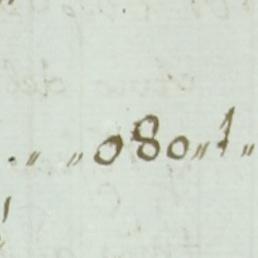 . „ „ 080 „ 1 „